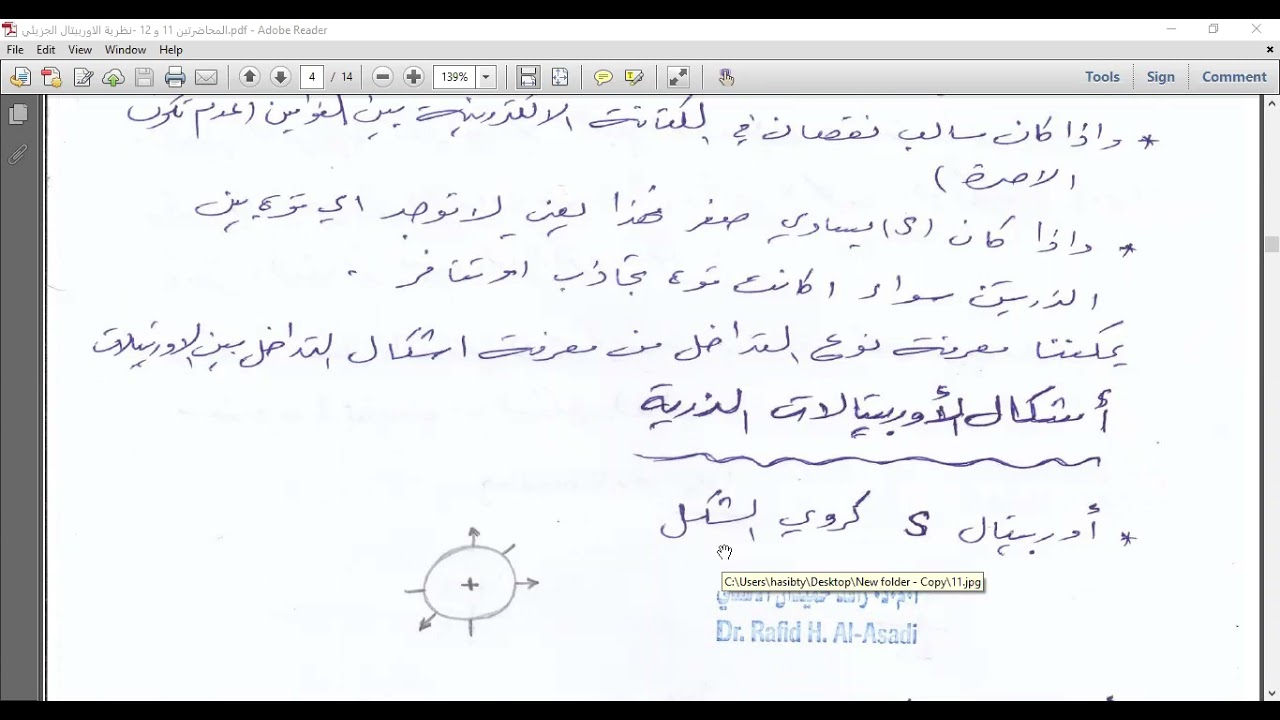 المحاضرتين 11 و 12 -نظرية الاوربيتال الجزيئي.pdf - Adobe Reader
File Edit View Window Help
4 / 14 139% Tools Sign Comment
* واذا كان سالب نقصان في الكثافة الالكترونية بين النواتين (عدم تكون
الاصرة)
* واذا كان (S) يساوي صفر فهذا يعني لا توجد اي قوة بين
الذرتين سواء اكانت قوة تجاذب او تنافر .
يمكننا معرفة نوع التداخل من معرفة اشكال التداخل بين الاوربتالات
أشكال الأوربيتالات الذرية
* أوربيتال S كروي الشكل
+
C:\Users\hasibty\Desktop\New folder - Copy\11.jpg
Dr. Rafid H. Al-Asadi